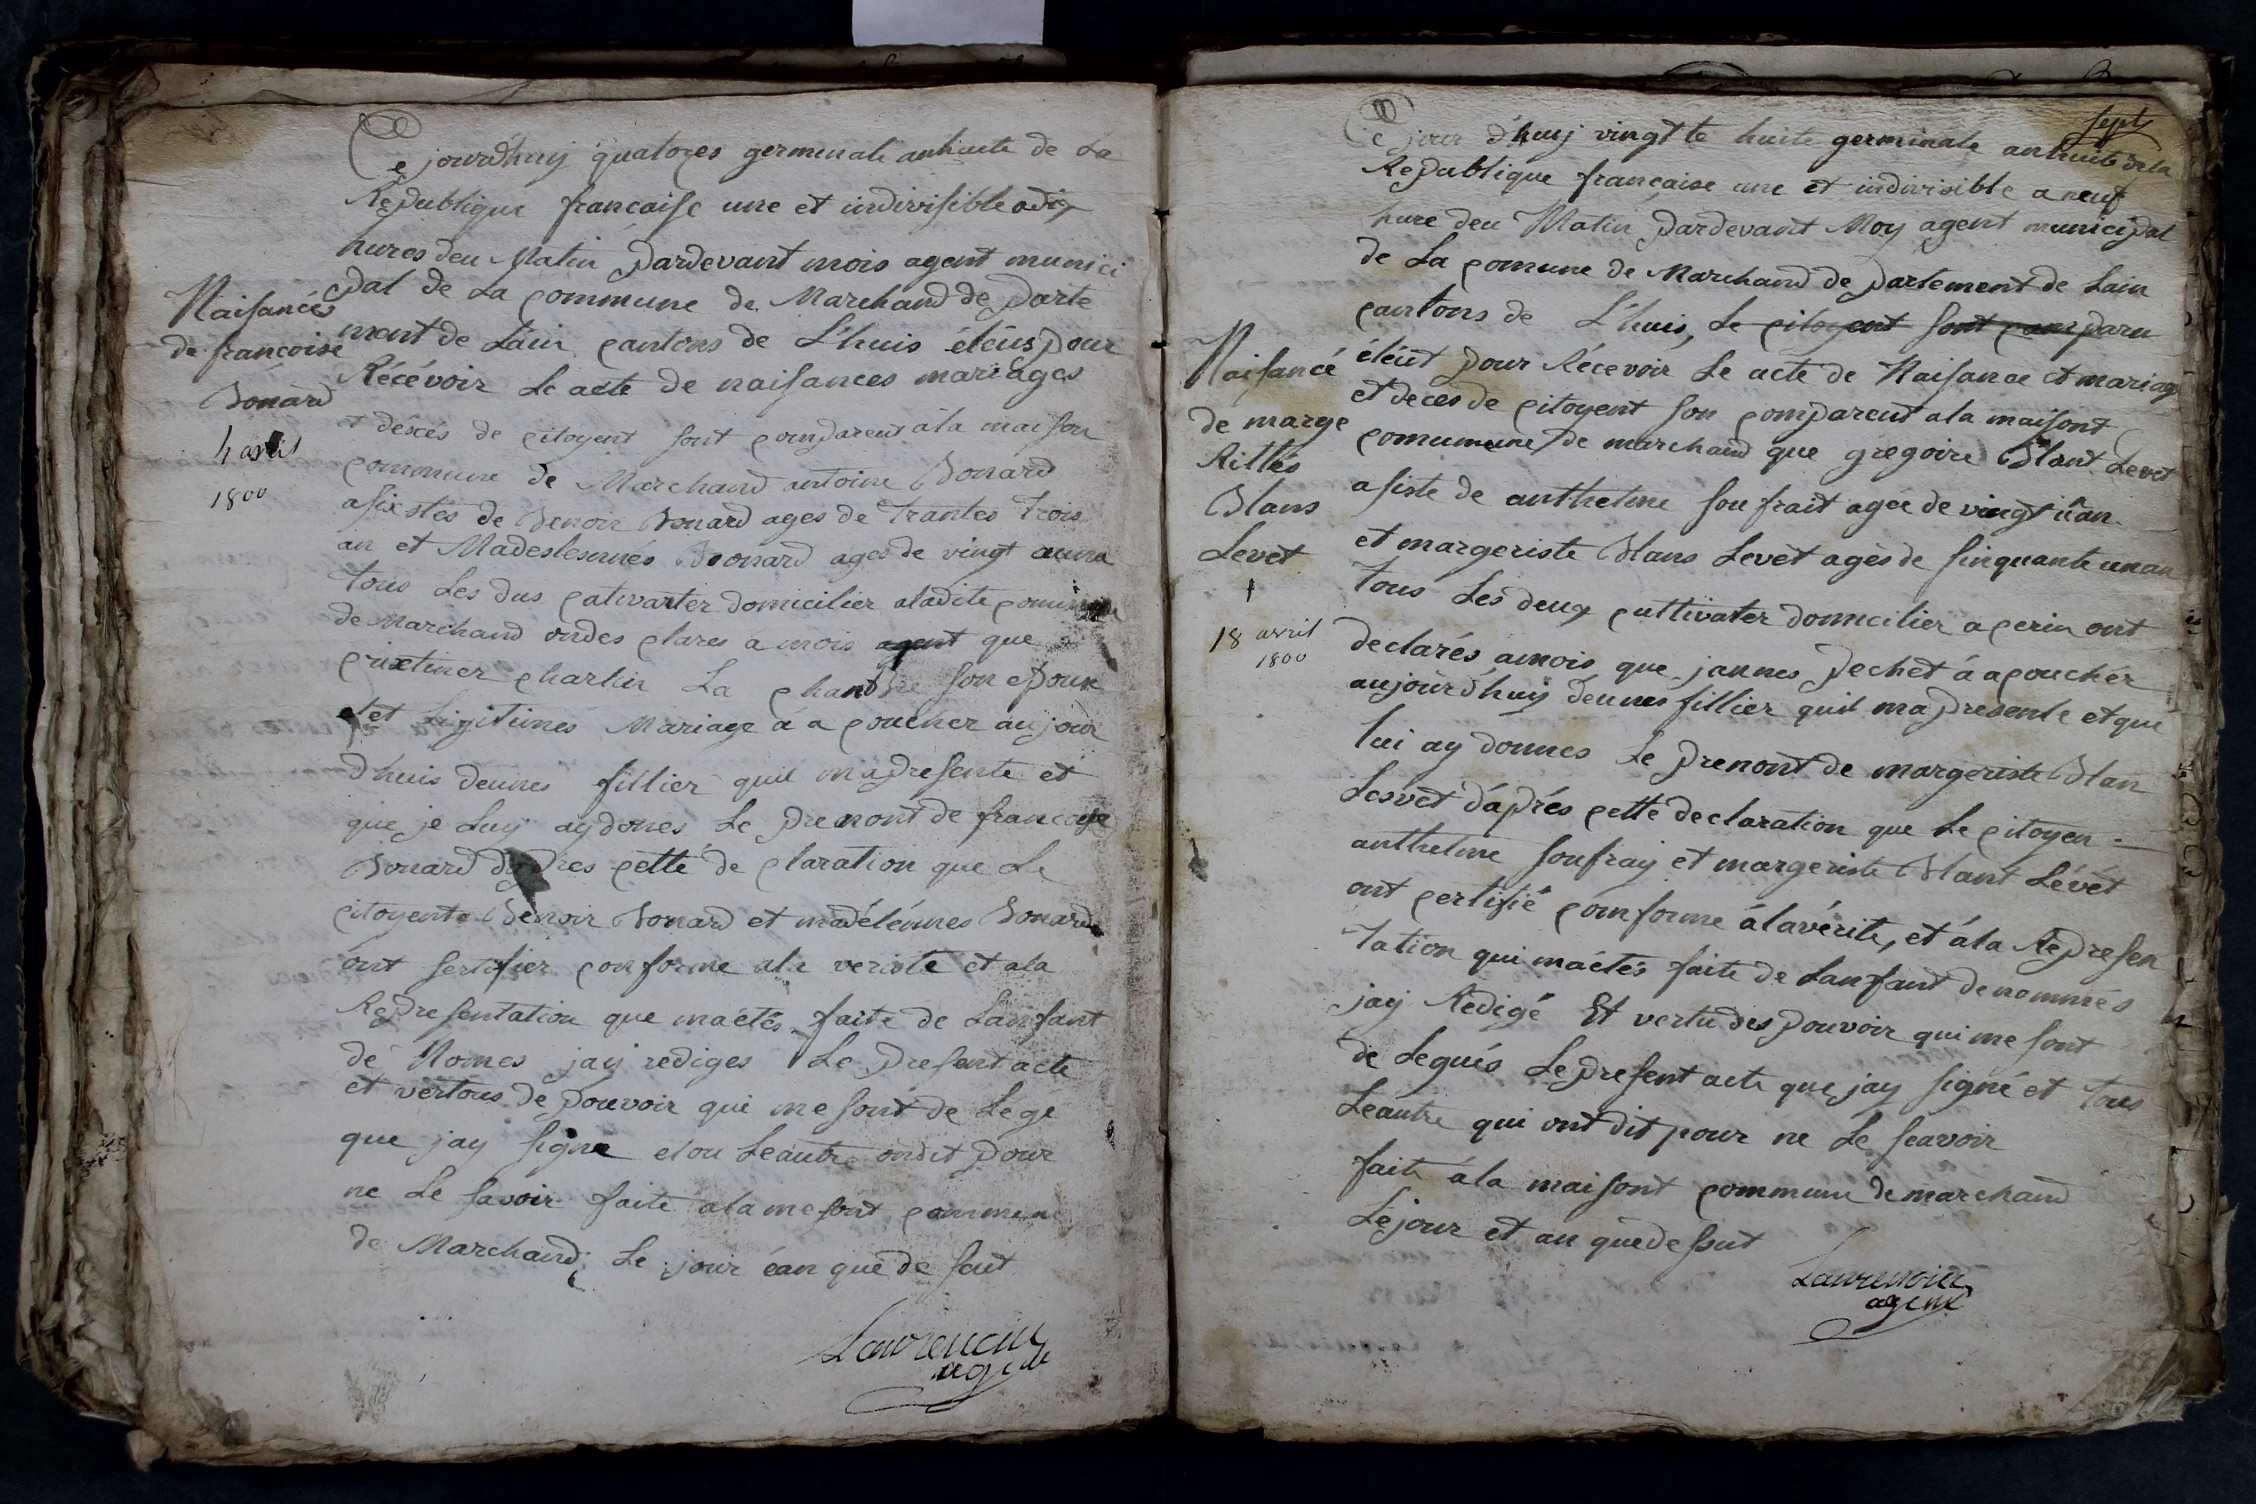 Ce jourdhuy quatozes germinale anhuite de La
Republique francaise une et indivisible a dix
hures deu Matin pardevant mois agent munici
pal de La commune de Marchand de parte
ment de Lain cantons de L'huis éléus pour
Récévoir Le acte de naisances mariages
et déscés de citoyent sont comparent àla maison
commune de Marchand antoine Bonard
asixstés de Benoir Bonard ages de trantes trois
an et Madeslesnnés Bonard ages de vingt
tous Les dus cativatér domicilier aladite
de Marchand ondes clares a mois agent que
cristiner charlin La son epoux
et Ligitimés Mariage à a coucher aujour
dhuis deunes fillier quil ma presente et
que je Luy ay donés Le prenont de francoise
Bonard dapres cette de claration que Le
citoyente Benoir Bonard et madéléinnes Bonard
ont sertifier conforme ala verité et ala
Representation que maétés faite de Lanfant
dé Nomes jay rediges Le present acte
et vertous de pouvoir qui me sont de Lége
que jay signe etou Leautre ondit pour
ne Lé savoir faite ala mesont commune
de Marchand Le jour éan que de sut
Laurencin
agent
Naisancés
de francoise
Bonard
4 avril
1800
sept
Ce jour d'huy vingtte huite germinale anhuite dela
Republique française une et indivisible a neuf
hure deu Matin pardevant Moy agent municipal
de La comune de Marchand de partement de Lain
cantons de L'huis, Le citoyent sont comparu
éléüt pour Récevoir Le acte de Naisance et mariage
et deces de citoyent son comparent ala maisont
comumune de marchand que gregoire Blant Levet
asiste de anthelme soufrait agée de vingt
et margeriste Blans Levèt agès de sinquante unan
tous Les deux cultivater domicilier a cerin ont
declarés amois que jannes pechet á acouchér
aujourd'huy deunes fillier quil ma presente et que
Lui ay donnes Le prenont de margeriste Blan
Lesvet d'aprés cette declaration que Le citoyen
anthelme soufray et margeriste Blant Lévèt
ont certifié comforme álavérite, et ála Represen
tation qui maétés faite de Lanfant denommés
jay Redigé Et vertu des pouvoir qui me sont
de Lequés Le present acte que jay signé et tous
Leautre qui ont dit pour ne Le scavoir
faite àla maisont commune de marchand
Lejour et an que de sut
Laurencin
agent
Naisancé
de marge
Rittes
Blans
Levet
18 avril
1800